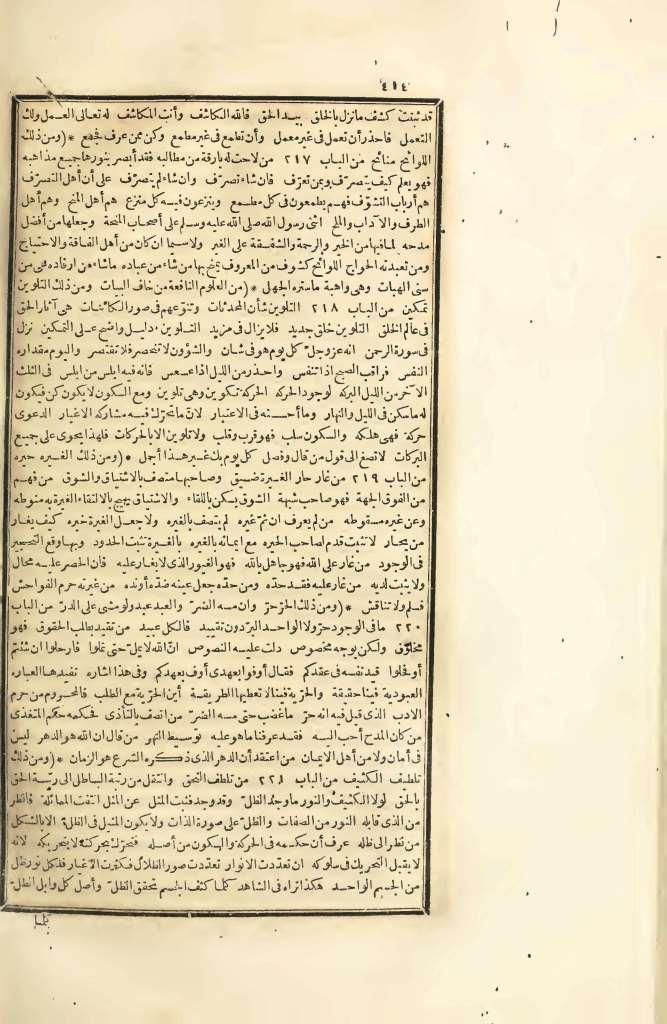 ٤١٤
قد ثبنت كشف مانزل بالخلق بيد الحق فالله الكاشف وأنت المكاشف له تعالى العمل ولك
التعمل فاحذر أن تعمل فى غير معمل وأن تطمع فى غير مطمع وكن ممن عرف فجمع *(ومن ذلك
اللوائح منائح من الباب ٢١٧ من لاحت له بارقة من مطالبه فقد أبصر بنورها جميع مذاهبه
فهو يعلم كيف يتصرف وبمن تعرف فان شاء تصرف وان شاء لم يتصرف على أن أهل التصرف
هم أرباب التشوف فهم يطمعون فى كل مطمع وينزعون فيه كل منزع هم أهل المنح وهم أهل
الطرف والآداب والملح اثنى رسول الله صلى الله عليه وسلم على أصحاب المنحة وجعلها من أفضل
مدحه لما فيها من الخير والرحمة والشفقة على الغير ولا سيما ان كان من أهل الفاقة والاحتياج
ومن تعبدته الحواج اللوائح كشوف من المعروف يمنح بها من شاء من عباده ماشاء من ارفاده فهى من
سنى الهبات وهى واهبة ماستره الجهل *(من العلوم النافعة من خاف البيات ومن ذلك التلوين
تمكين من الباب ٢١٨ التلوين شأن المحدثات وتنوعهم فى صور الكائنات هى آثار الحق
فى عالم الخلق التلوين خلق جديد فلا يزال فى مزيد التلوين دليل واضح على التمكين نزل
فى سورة الرحمن انه عز وجل كل يوم هو فى شان والشؤون لا تنحصر فلا تقتصر واليوم مقداره
النفس فراقب الصبح اذا تنفس واحذر من الليل اذا عسعس فانه فيه ابلس من ابلس فى الثلث
الآخر من الليل البركه لوجود الحركه الحركة تكوين وهى تلوين ومع السكون لا يكون كن فيكون
له ماسكن فى الليل والنهار وما أحسنه فى الاعتبار لان ما تحرك فيه مشاركه الاغيار الدعوى
حركة فهى هلكه والسكون سلب فهو قرب وقلب ولا تلوين الا بالحركات فلهذا يحوى على جميع
البركات لا تصغ الى قول من قال وفصل كل يوم بك غير هذا أجمل *(ومن ذلك الغيره حيره
من الباب ٢١٩ من غار حار الغيرة ضيق وصاحبها متصف بالاشتياق والشوق من فهم
من الفوق الجهة فهو صاحب شبهة الشوق يسكن باللقاء والاشتياق يهيج بالالتقاء الغيرة به منوطه
وعن غيره مسقوطه من لم يعرف ان ثم غيره لم يتصف بالغيره ولا جعل الغيرة خيره كيف يغار
من يحار لا تثبت قدم لصاحب الحيره مع ايمانه بالغيره بالغيرة تثبت الحدود وبها وقع التحجير
فى الوجود من غار على الله فهو جاهل بالله فهو الغيور الذى لا يغار عليه فان الحصر عليه محال
ولا يثبت لديه من غار عليه فقد حده ومن حده جعل عينه ضده أو نده من غيرته حرم الفواحش
فسلم ولا تناقش *(ومن ذلك الحر حر وان مسه الضر والعبد عبد ولو مشى على الدر من الباب
٢٢٠ ما فى الوجود حر ولا الواحد البر دون تقييد فالكل عبيد من تقيد بطلب الحقوق فهو
مخلوق ولكن بوجه مخصوص دلت عليه النصوص ان الله لا يمل حتى تملوا فارحلوا ان شئتم
أو فحلوا قيد نفسه فى عقدكم فقال أوفوا بعهدى أوف بعهدكم وفى هذا اشاره تفيدها العباره
العبودية فينا حقيقة والحرية فينا لا تعطيها الطريقة أين الحرية مع الطلب فالمحروم من حرم
الادب الذى قيل فيه انه حر ما غضب حتى مسه الضر من اتصف بالتأذى فحكمه حكم المتغذى
من كان المدح أحب اليه فقد عرفنا ما هو عليه بوسيط النهر من قال ان الله هو الدهر ليس
فى أمان ولا من أهل الايمان من اعتقد أن الدهر الذى ذكره الشرع هو الزمان *(ومن ذلك
تلطيف الكثيف من الباب ٢٢١ من تلطف التحق وانتقل من رتبة الباطل الى رتبة الحق
بالحق لولا الكثيف والنور ما وجد الظل وقد وجد فثبت المثل عن المثل انتفت المماثلة فانظر
من الذى قابله النور من الصفات والظل على صورة الذات ولا يكون المثيل فى الظلة الا بالشكل
من نظر الى ظله عرف أن حكمه فى الحركة والسكون من أصله فتحرك بحركته لا بتحريكه لانه
لا يقبل التحريك فى سلوكه ان تعددت الانوار تعددت صور الظلال فكثرت الاغيار فلكل نور ظل
من الجسم الواحد هكذا تراه فى الشاهد كلما كثف الجسم تحقق الظل وأصل كل وابل الطل